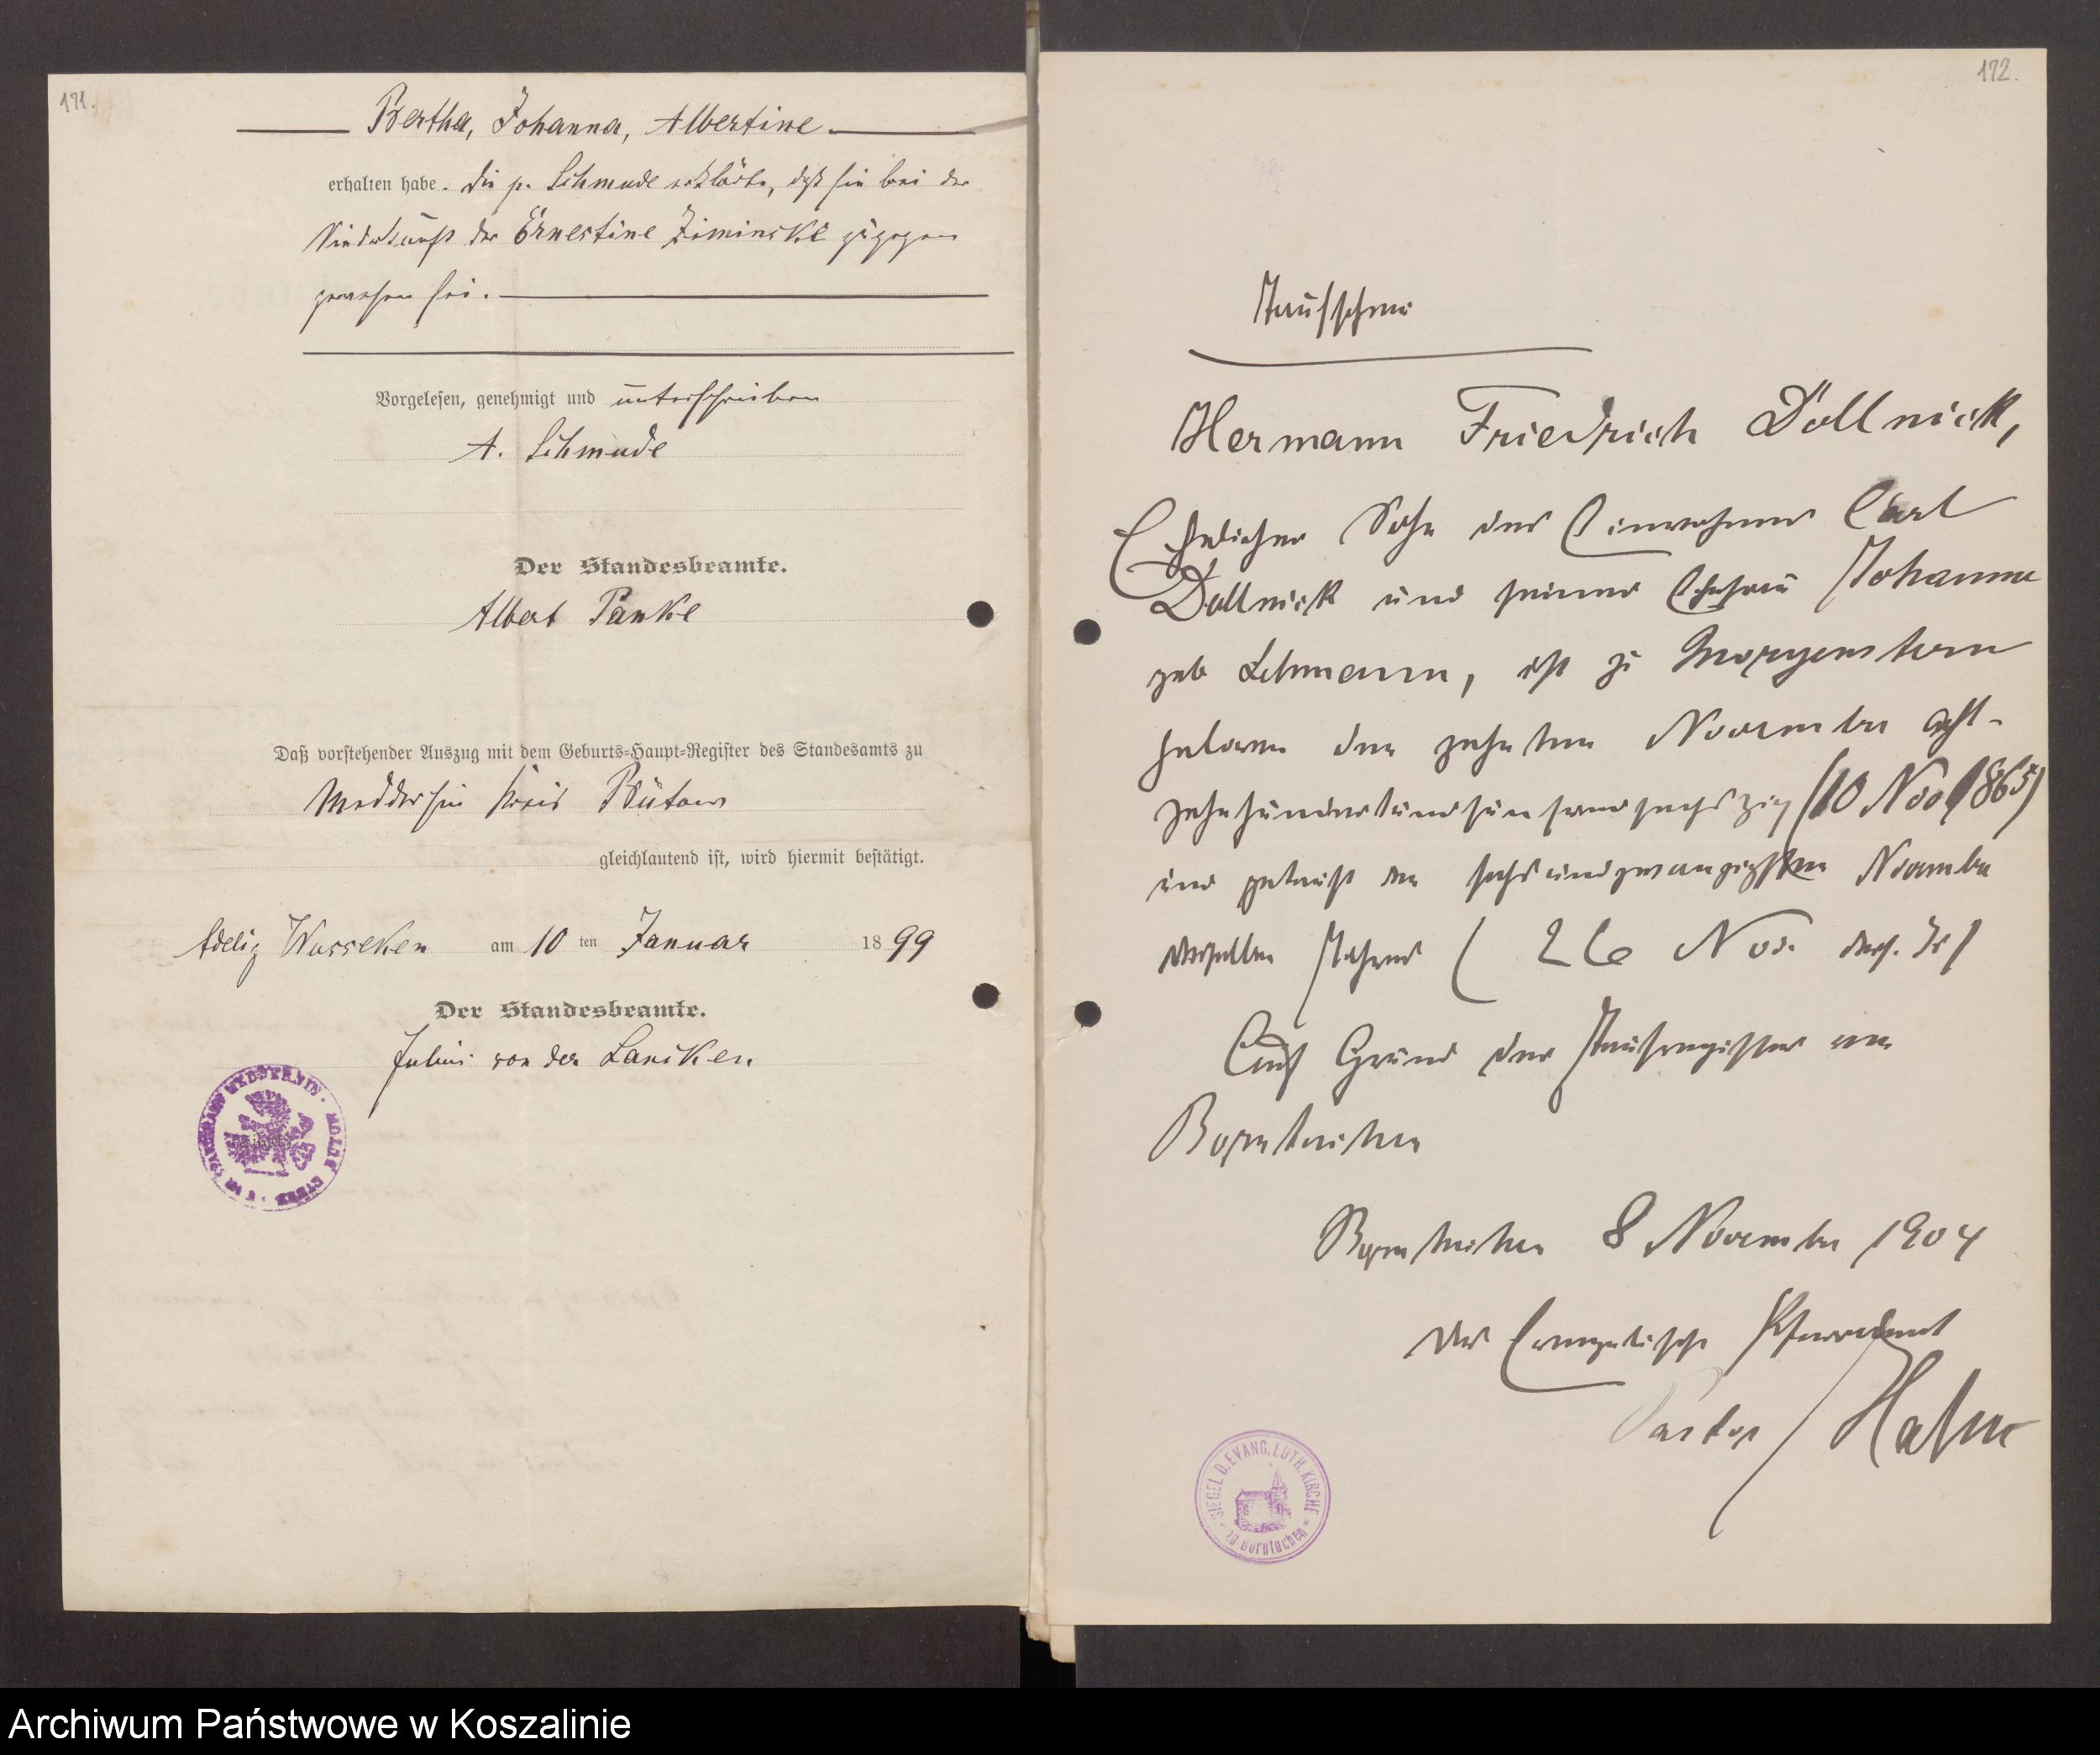 191.
Bertha, Johanna, Albertine
erhalten habe. Die p. Schmude erklärte, daß sie bei der
Niederkunft der Ernestine Ziminske zugegen
gewesen sei.
Vorgelesen, genehmigt und unterschrieben
A. Schmude
Der Standesbeamte.
Albert Panke
Daß vorstehender Auszug mit dem Geburts-Haupt-Register des Standesamts zu
Meddersin Kreis Bütow
gleichlautend ist, wird hiermit bestätigt.
Adelig Wusseken am 10 ten Januar 1899
Der Standesbeamte.
Julius von der Lancken
192.
Taufschein
Hermann Friedrich Dollnick,
Ehelicher Sohn des Einwohners Carl
Dollnick und seiner Ehefrau Johanne
geb Lehmann, ist zu Morgenstern
geboren den zehnten November acht-
zehnhundertundfünfundsechszig (10 Nov 1865)
und getauft den sechsundzwanzigsten November
desselben Jahres ( 26 Nov. dess. Js)
Auf Grund des Taufregisters von
Borntuchen
Borntuchen 8 November 1904
Das Evangelische Pfarramt
Pastor Hahn
SIEGEL D. EVANG. LUTH. KIRCHE
ZU Borntuchen
Archiwum Państwowe w Koszalinie